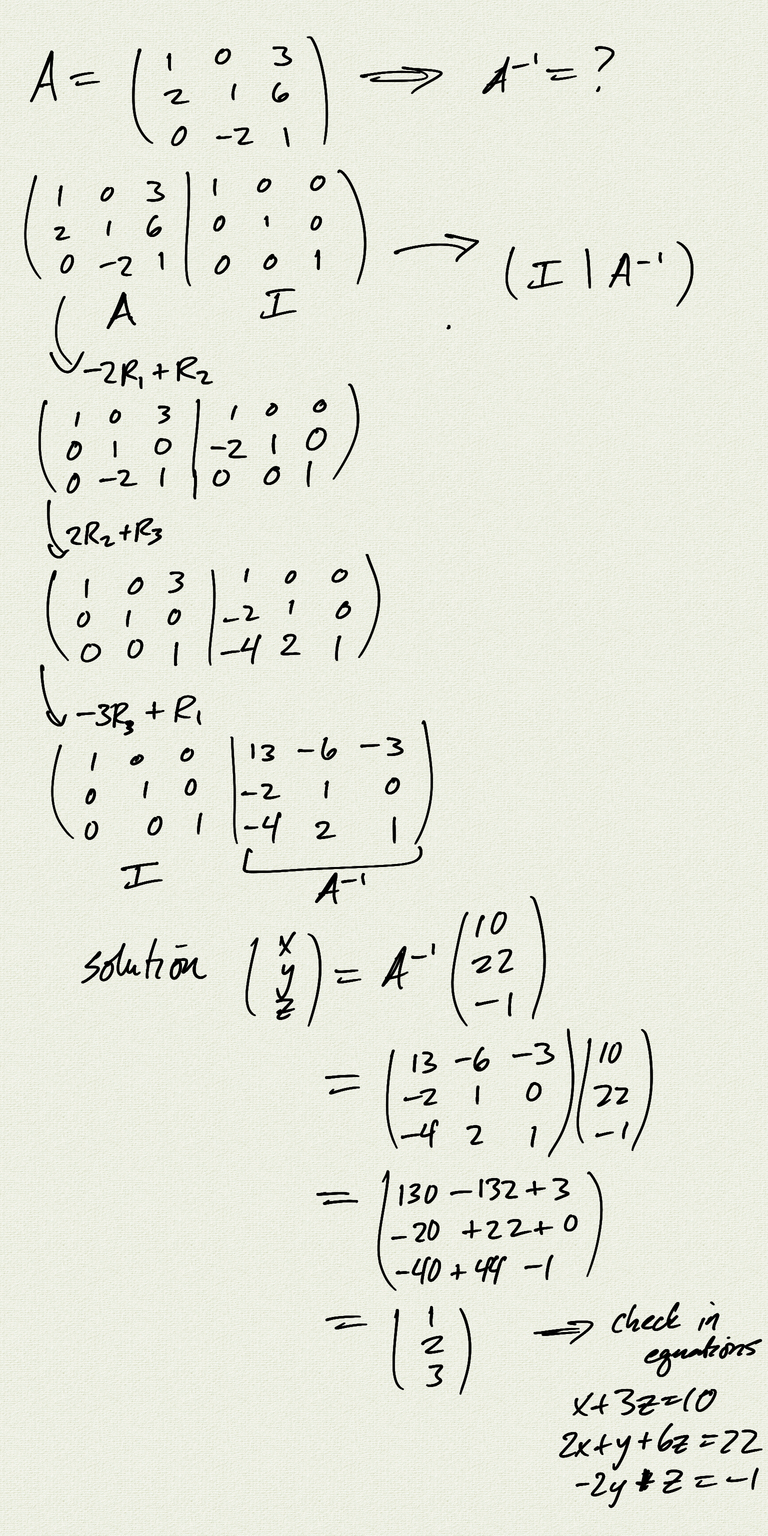 A = ( 1 0 3 ⟹ A⁻¹ = ?
2 1 6
0 -2 1 )
( 1 0 3 | 1 0 0
2 1 6 | 0 1 0
0 -2 1 | 0 0 1 ) → ( I | A⁻¹ )
A I
-2R₁ + R₂
( 1 0 3 | 1 0 0
0 1 0 | -2 1 0
0 -2 1 | 0 0 1 )
2R₂ + R₃
( 1 0 3 | 1 0 0
0 1 0 | -2 1 0
0 0 1 | -4 2 1 )
-3R₃ + R₁
( 1 0 0 | 13 -6 -3
0 1 0 | -2 1 0
0 0 1 | -4 2 1 )
I A⁻¹
solution ( x y z ) = A⁻¹ ( 10 22 -1 )
= ( 13 -6 -3 ) ( 10
-2 1 0 22
-4 2 1 ) -1 )
= ( 130 -132 + 3
-20 + 22 + 0
-40 + 44 -1 )
= ( 1 2 3 ) ⟹ check in
equations
x + 3z = 10
2x + y + 6z = 22
-2y + z = -1